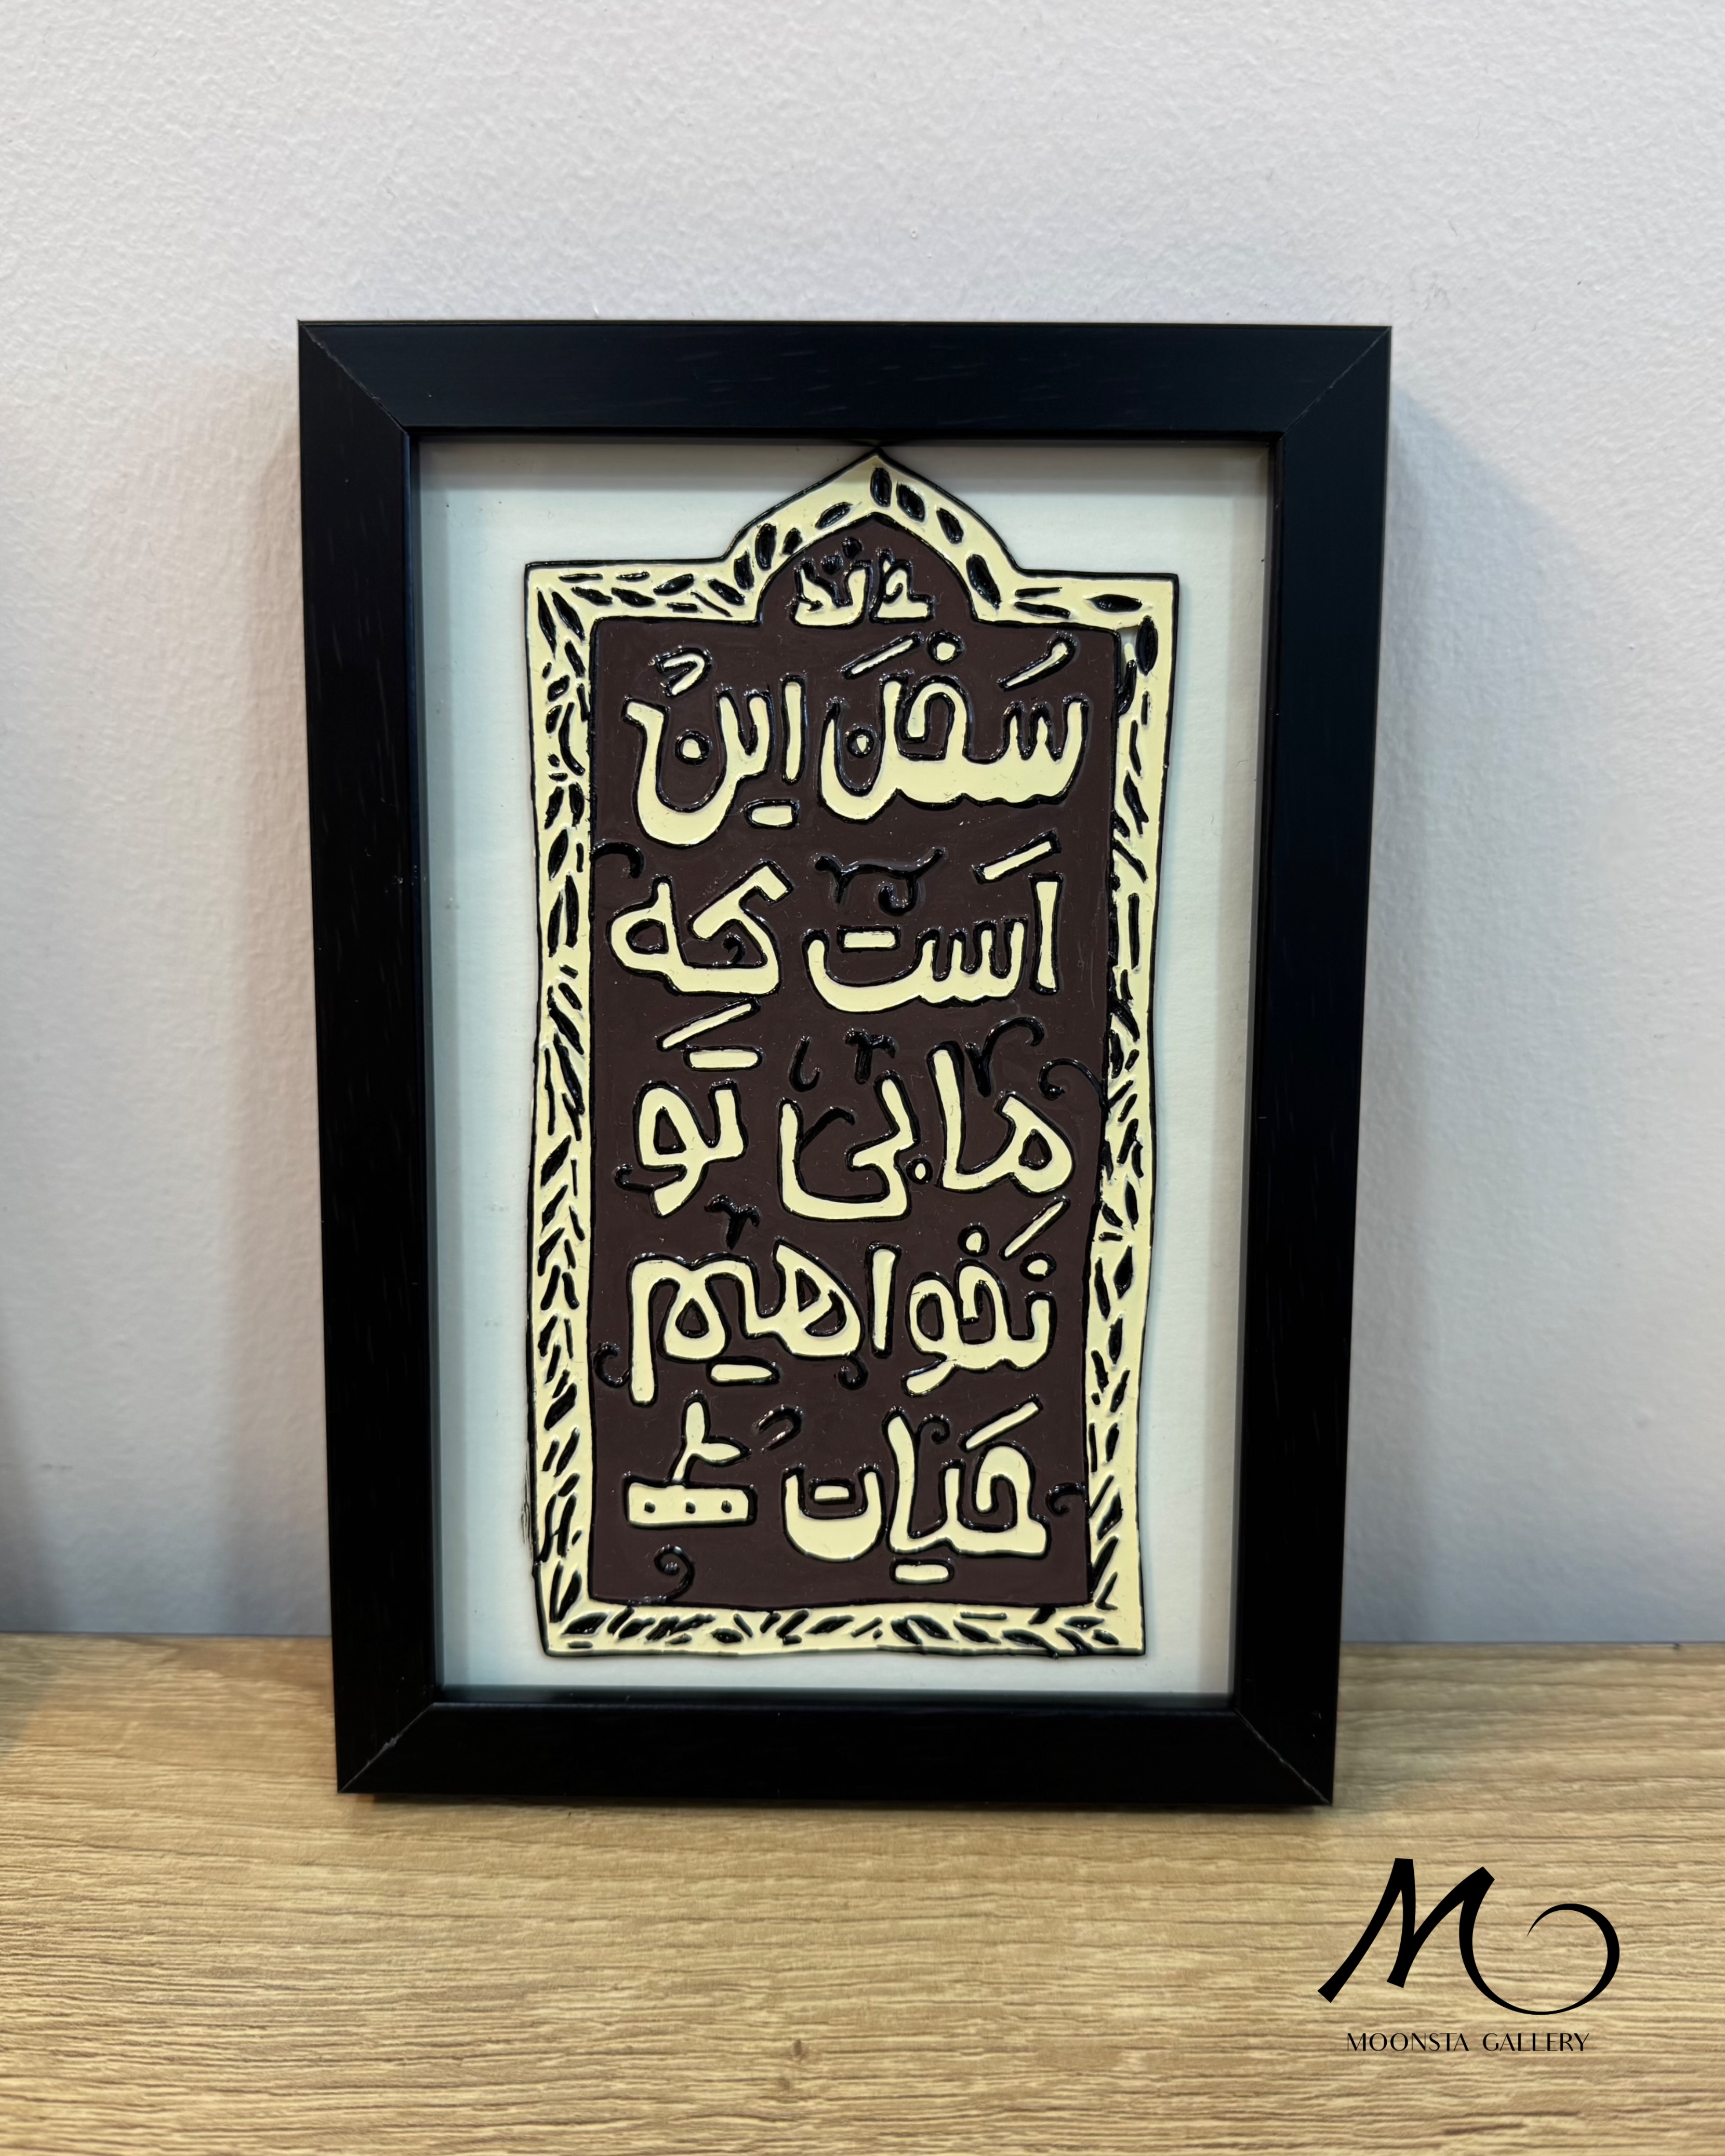 سُخَن اینُ
اَست که
ما بی تَو
نَخواهیم
حَیات
MOONSTA GALLERY